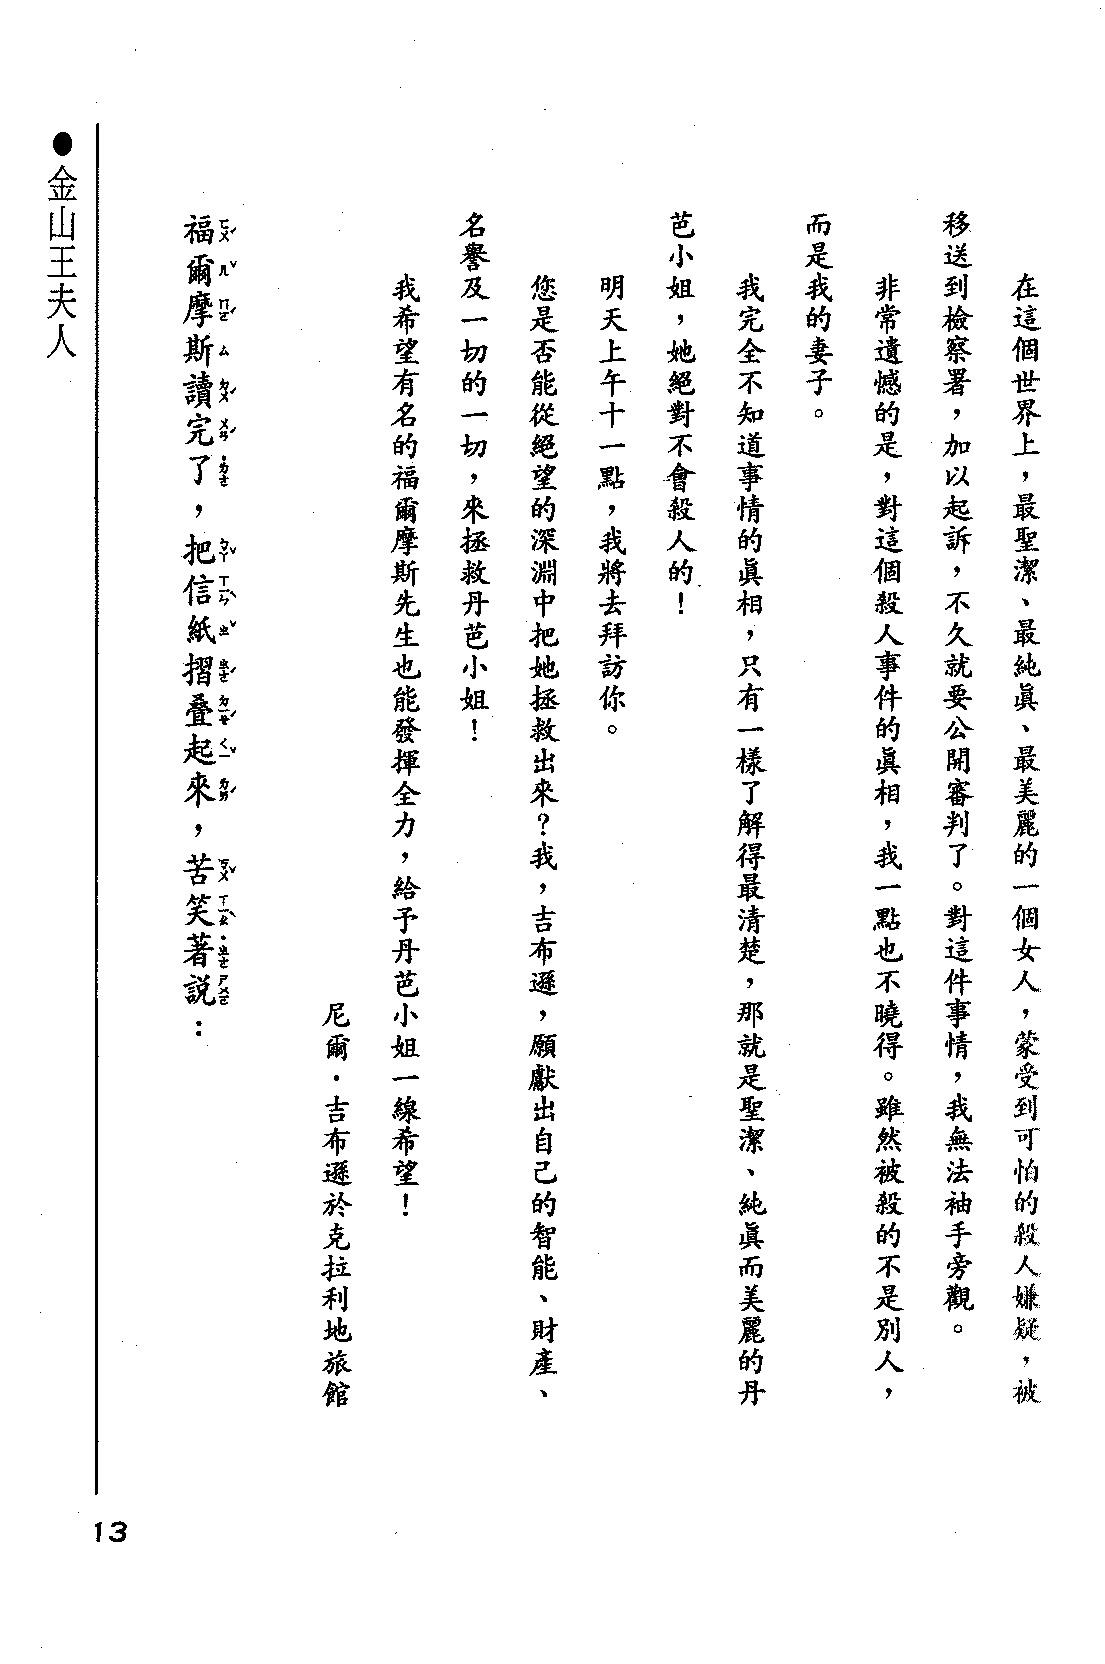 在這個世界上，最聖潔、最純眞、最美麗的一個女人，蒙受到可怕的殺人嫌疑，被
移送到檢察署，加以起訴，不久就要公開審判了。對這件事情，我無法袖手旁觀。
非常遺憾的是，對這個殺人事件的眞相，我一點也不曉得。雖然被殺的不是別人，
而是我的妻子。
我完全不知道事情的眞相，只有一樣了解得最清楚，那就是聖潔、純眞而美麗的丹
芭小姐，她絕對不會殺人的！
明天上午十一點，我將去拜訪你。
您是否能從絕望的深淵中把她拯救出來？我，吉布遜，願獻出自己的智能、財產、
名譽及一切的一切，來拯救丹芭小姐！
我希望有名的福爾摩斯先生也能發揮全力，給予丹芭小姐一線希望！
尼爾·吉布遜於克拉利地旅館
福ㄈㄨˊ爾ㄦˇ摩ㄇㄛˊ斯ㄙ讀ㄉㄨˊ完ㄨㄢˊ了˙ㄌㄜ，把ㄅㄚˇ信ㄒㄧㄣˋ紙ㄓˇ摺ㄓㄜˊ疊ㄉㄧㄝˊ起ㄑㄧˇ來ㄌㄞˊ，苦ㄎㄨˇ笑ㄒㄧㄠˋ著˙ㄓㄜ說ㄕㄨㄛ：
●金山王夫人
13